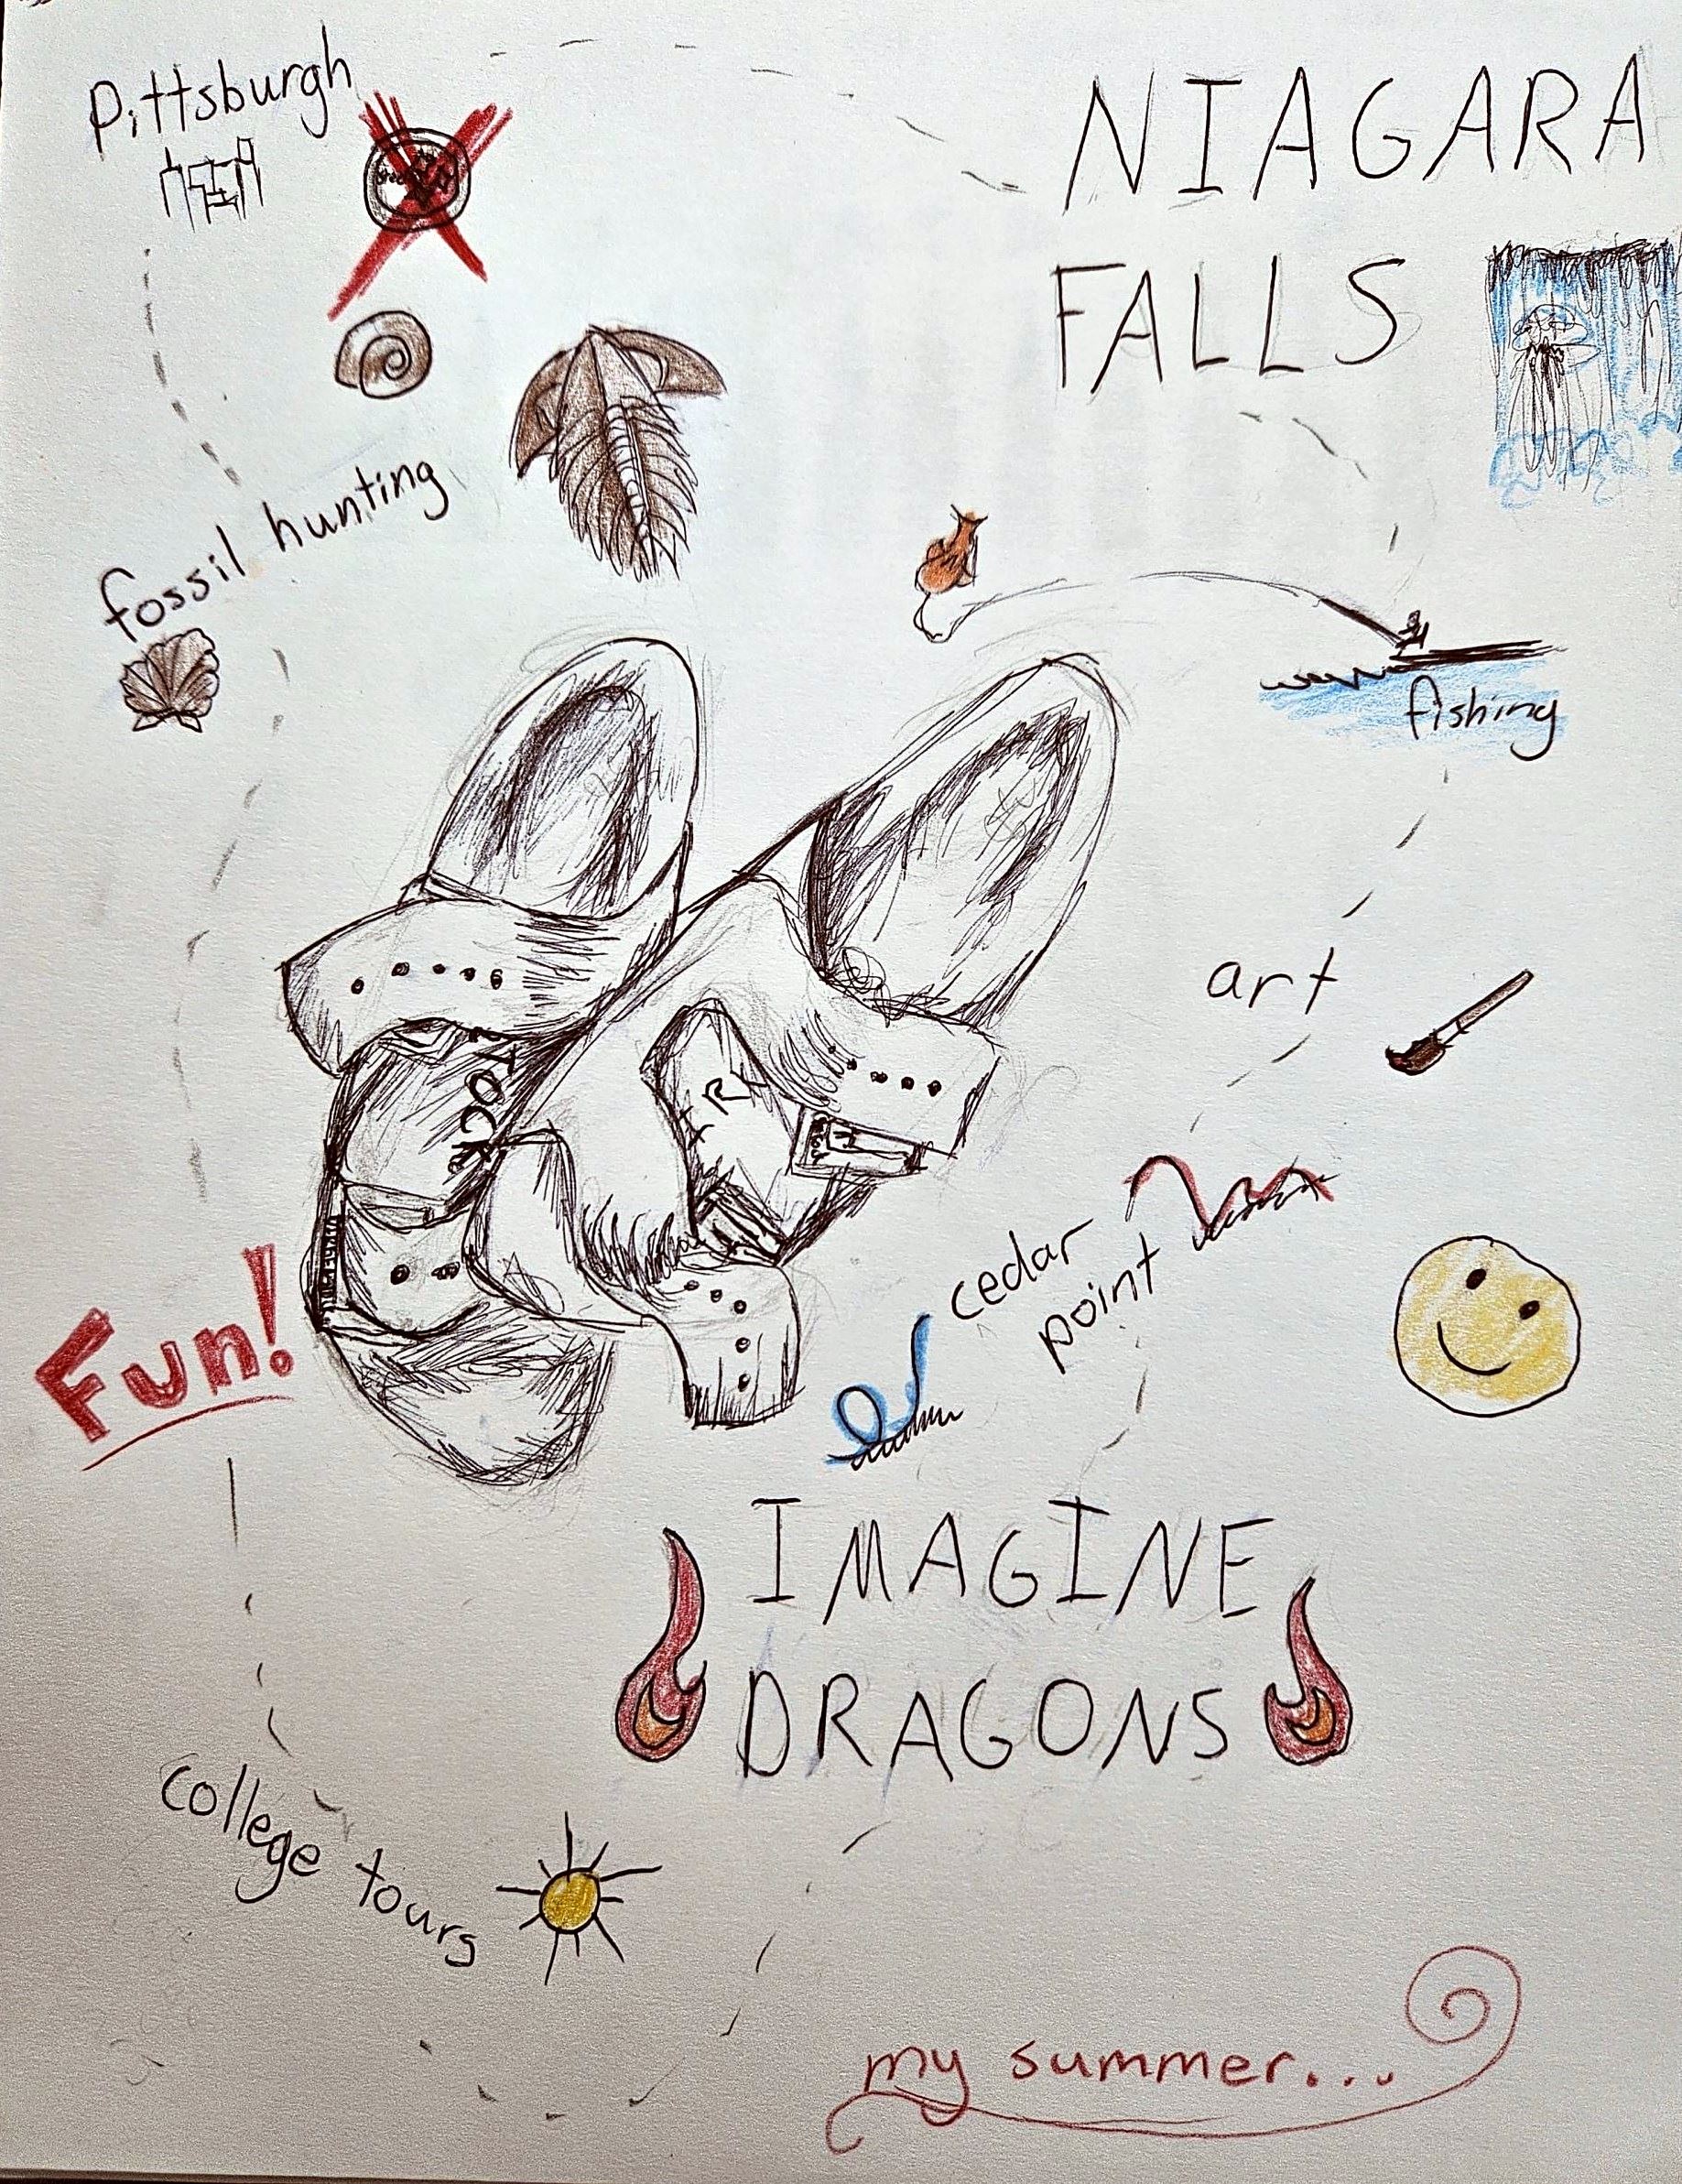 Pittsburgh
NIAGARA
FALLS
fossil hunting
fishing
art
cedar
point
Fun!
IMAGINE
DRAGONS
college tours
my summer...